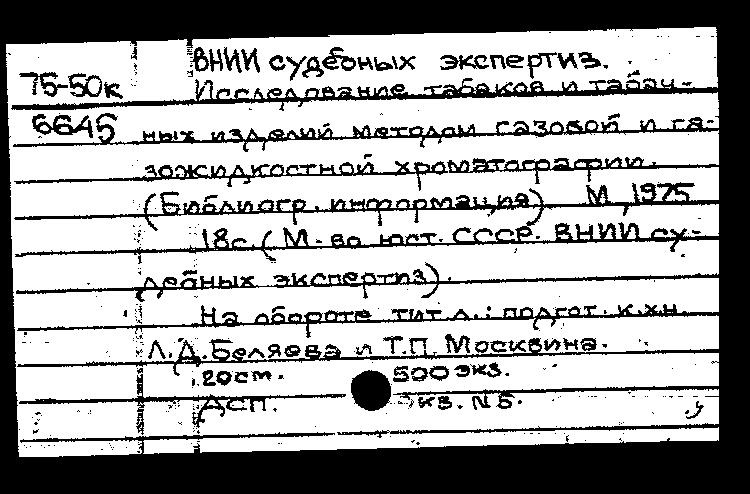 ВНИИ судебных экспертиз.
75-50к Исследование табаков и табач-
6645 ных изделий методом газовой и га-
зожидкостной хроматографии.
(Библиогр. информация). М, 1975
18с. (М-во юст. СССР. ВНИИ су-
дебных экспертиз).
На обороте тит. л.: подгот. к.х.н.
Л.Д. Беляева и Т.П. Москвина.
20см. 500 экз.
ДСП. экз. №5.